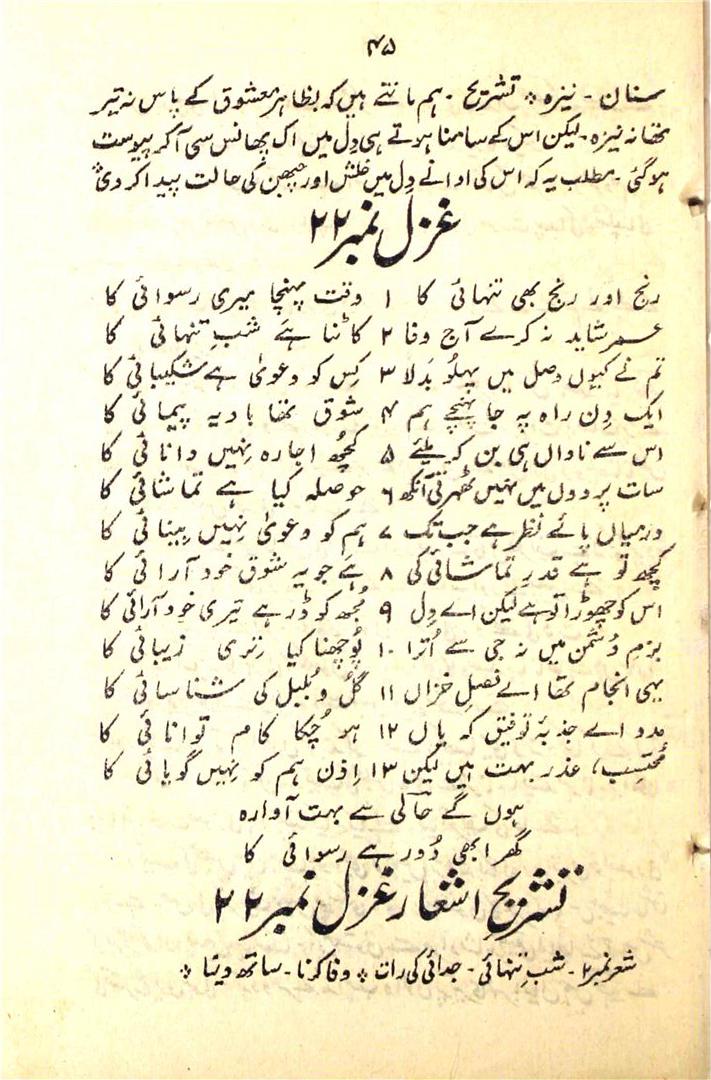 ۴۵
سنان - نیزہ ٭ تشریح - ہم مانتے ہیں کہ بظاہر معشوق کے پاس نہ تیر
تھا نہ نیزہ - لیکن اس کے سامنا ہوتے ہی دِل میں اک پھانس سی آکر پیوست
ہو گئی - مطلب یہ کہ اس کی ادا نے دِل میں خلش اور چبھن کی حالت پیدا کر دی ٭
غزل نمبر ۲۲
رنج اور رنج بھی تنہائی کا ۱ وقت پہنچا میری رسوائی کا
عمر شاید نہ کرے آج وفا ۲ کاٹنا ہے شبِ تنہائی کا
تم نے کیوں وصل میں پہلُو بَدلا ۳ کِس کو دعویٰ ہے شکیبائی کا
ایک دِن راہ پہ جا پہنچے ہم ۴ شوق تھا بادیہ پیمائی کا
اس سے ناداں ہی بن کر مِلئے ۵ کُچھ اجارہ نہیں دانائی کا
سات پردوں میں نہیں ٹھہرتی آنکھ ۶ حوصلہ کیا ہے تماشائی کا
درمیاں پائے نظر ہے جب تک ۷ ہم کو دعویٰ نہیں بینائی کا
کچھ تو ہے قدر تماشائی کی ۸ ہے جو یہ شوق خود آرائی کا
اس کو چھوڑا تو ہے لیکن اے دِل ۹ مُجھ کو ڈر ہے تیری خود آرائی کا
بزمِ دُشمن میں نہ جی سے اُترا ۱۰ پُوچھنا کیا تِری زیبائی کا
یہی انجام تھا اے فصلِ خزاں ۱۱ گُل و بُلبل کی شناسائی کا
مدد اے جذبۂ توفیق کہ یاں ۱۲ ہو چُکا کام توانائی کا
مُحتسب، عذر بہت ہیں لیکن ۱۳ اِذن ہم کو نہیں گویائی کا
ہوں گے حالی سے بہت آوارہ
گھر ابھی دُور ہے رسوائی کا
تشریح اشعار غزل نمبر ۲۲
شعر نمبر ۲ - شبِ تنہائی - جدائی کی رات ٭ وفا کرنا - ساتھ دینا ٭